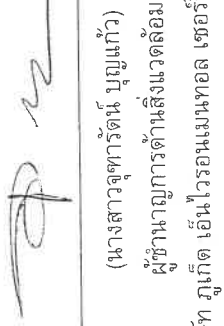 (นางสาวจุฑารัตน์ บุญแก้ว)
ผู้ชำนาญการด้านสิ่งแวดล้อม
ภูเก็ต เอ็นไวรอนเมนทอล เซอร์